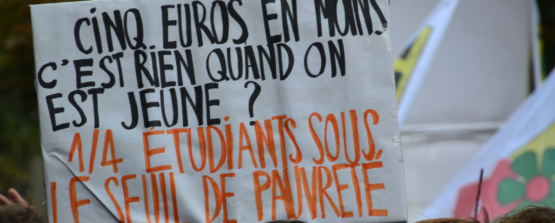 CINQ EUROS EN MOINS
C'EST RIEN QUAND ON
EST JEUNE ?
1/4 ÉTUDIANTS SOUS
LE SEUIL DE PAUVRETÉ